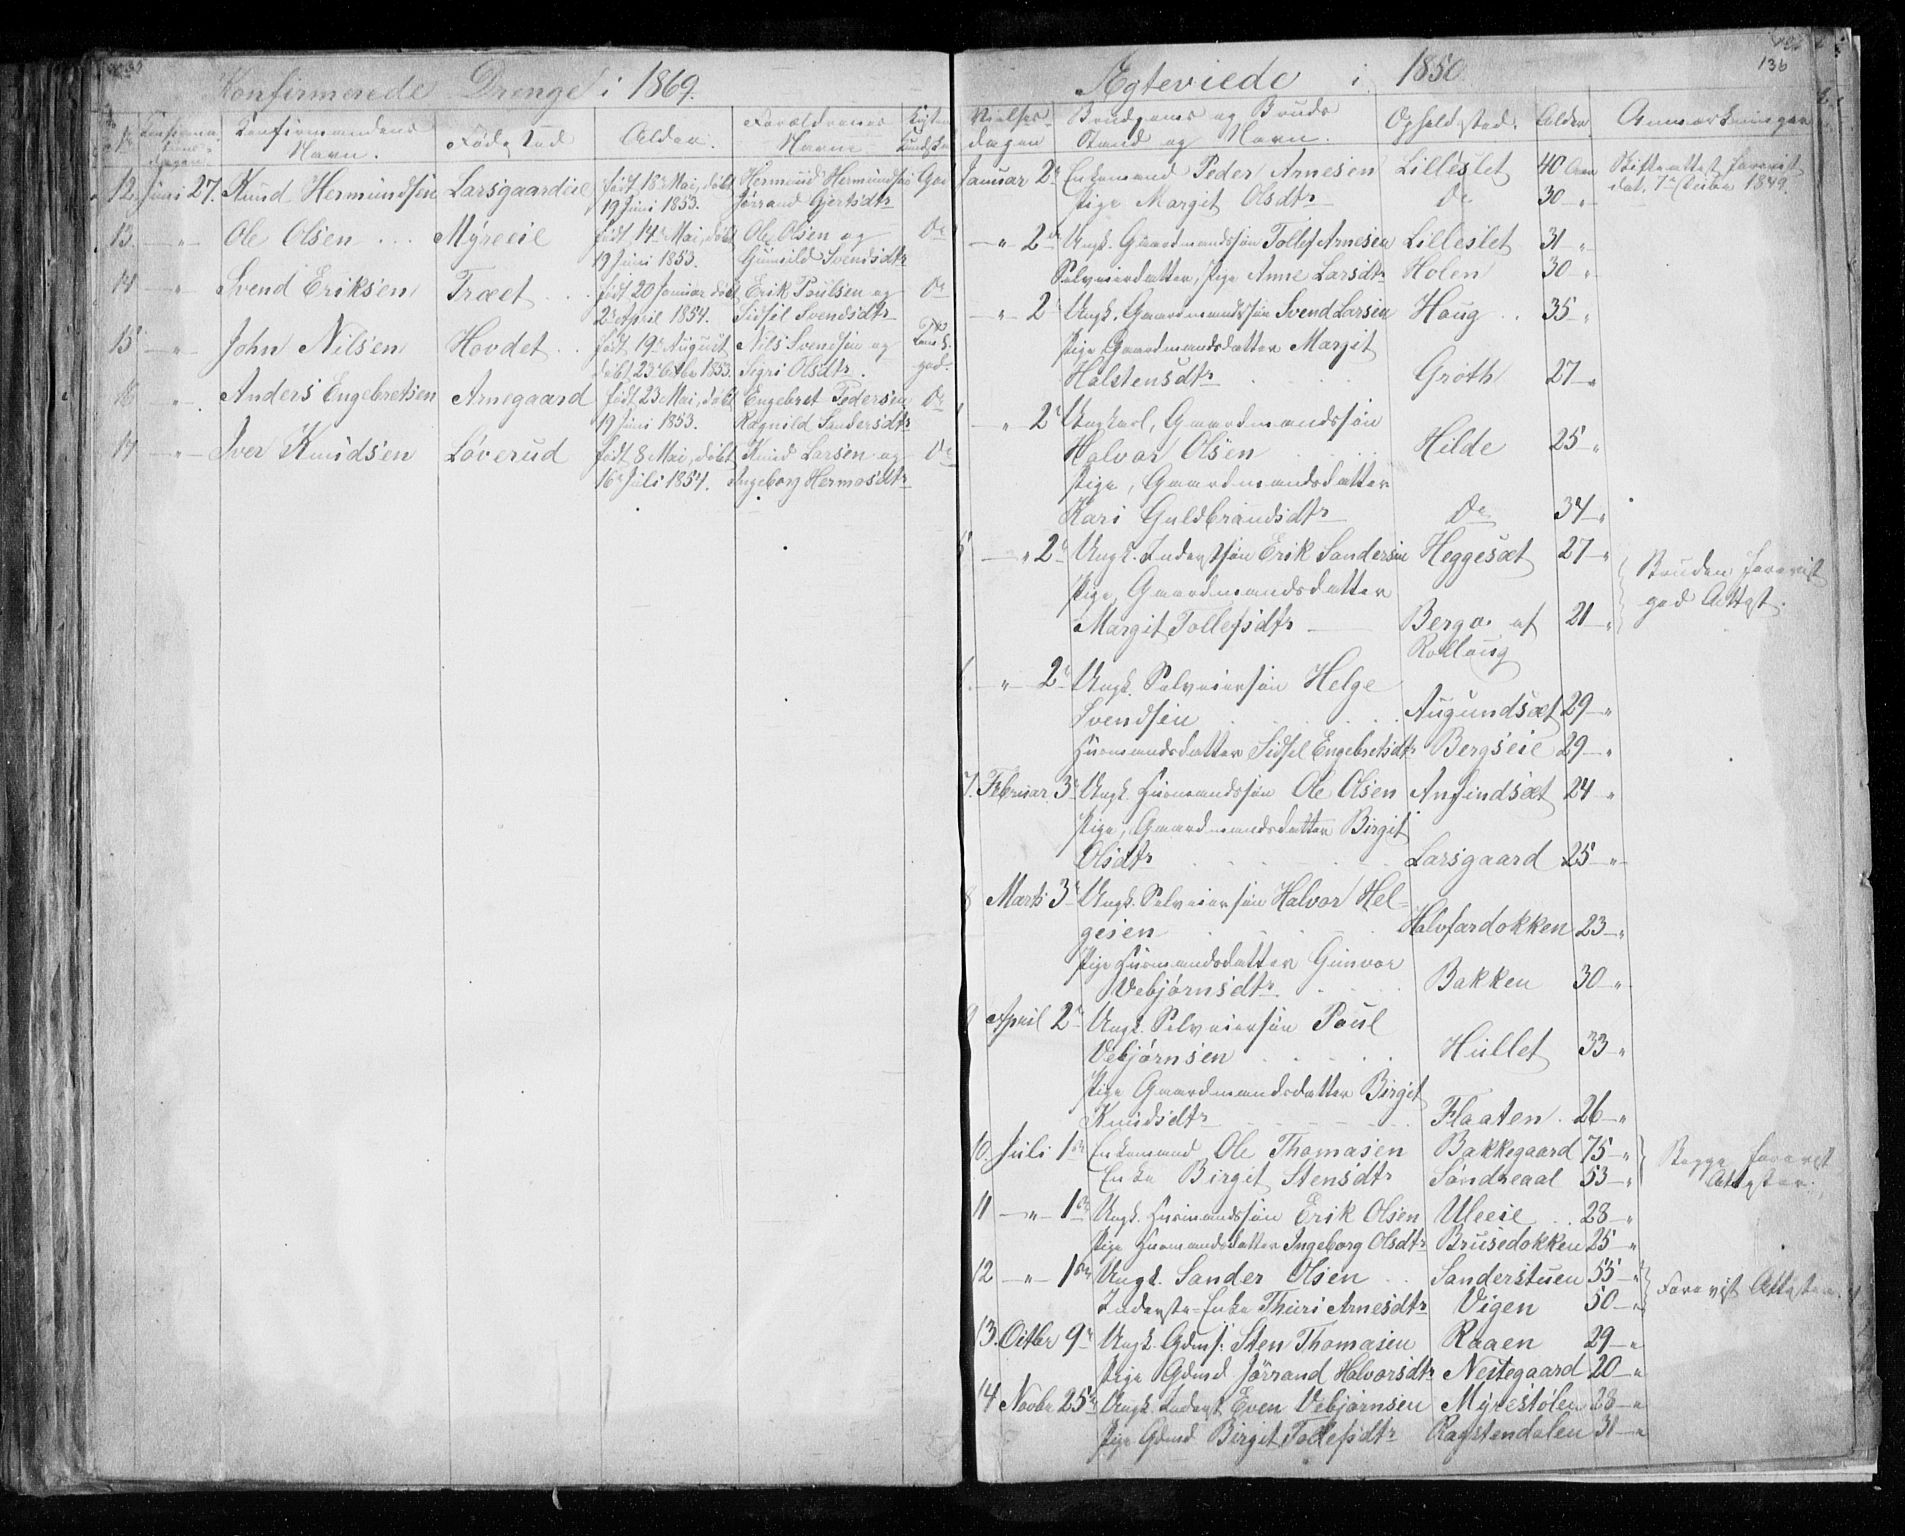 Konfirmerede Drenge i 1869.
No Konfirmandens Navn. Fødested Alder. Forældrenes Navne
12. Juni 27. Knud Hermundsen Larsgaardeie født 18 Mai, døbt Hermund Hermundsen God
19 Juni 1853. Jørrand Gjertsdtr
13. — " Ole Olsen ... Myreeie født 14 Mai, døbt Ole Olsen og Do
19 Juni 1853. Gunild Svendsdtr
14 — " Svend Eriksen Træet . . født 20 Januar døbt Erik Poulsen og Do
2 April 1854. Sidsil Svendsdtr
15 — " John Nilsen Hovdet . . født 19 August Nils Svendsen og
døbt 23 1853. Sigri Olsdtr. god.
16 " Anders Engebretsen Arnegaard født 23 Mai, døbt Engebret Pedersen Do
19 Juni 1853. Ragnild Sandersdtr
17 — " Iver Knudsen Løverud født 8 Mai, døbt Knud Larsen og Do
16 Juli 1854. Ingeborg Hermosdtr
136
Ægteviede i 1850
Vielses- dagen Brudgoms og Bruds Stand og Navn. Opholdsted. Alder. Anmærkninger
Januar 2 Enkemand Peder Arnesen Lilleslet 40 Aar Skifteattest forevist
Pige Margit Olsdtr Do 30 " dat. 7 1849.
— " 2 Ungk. Gaardmandssøn Tollef Arnesen Lilleslet 31 "
Selveierdatter, Pige Anne Larsdtr Holen 30 "
— " 2 Ungk. Gaardmandssøn Svend Larsen Haug . . 35 "
Pige Gaardmandsdatter Margit
Halstensdtr . . . . Groth 27 "
" 2 Ungkarl, Gaardmandssøn
Halvor Olsen . . . . Hilde 25 "
Pige, Gaardmandsdatter
Kari Guldbrandsdtr Do 34 "
5 — " 2 Ungk. Inderstsøn Erik Sandersen Heggesæt 27 " Bruden forevist
Pige, Gaardmandsdatter god Attest.
Margit Tollefsdtr — Bergo. af 21 "
Rollaug
6. — " 2 Ungk. Selveiersøn Helge
Svendsen . . . . . Augundsæt 29 "
Husmandsdatter Sidsel Engebretsdtr Bergseie 29 "
7. Februar 3 Ungk. Husmandssøn Ole Olsen Anfindsæt 24 "
Pige, Gaardmandsdatter Birgit
Olsdtr . . . . . Larsgaard 25 "
8 Marts 3 Ungk. Selveiersøn Halvor Hel-
gesen . . . . . Halvfardokken 23 "
Pige Husmandsdatter Gunvor
Vebjørnsdtr . . . . Bakken 30 "
9 April 2 Ungk. Selveiersøn Poul
Vebjørnsen . . . . . Hullet 33 "
Pige Gaardmandsdatter Birgit
Knudsdtr . . . . . Flaaten . 26 "
10. Juli 1 Enkemand Ole Thomasen Bakkegaard 75 " Begge forevist
Enke Birgit Stensdtr Søndreaal 53 " Attester.
11 — " — 1 Ungk. Husmandssøn Erik Olsen Uleeie . . 28 "
Pige Husmandsdatter Ingeborg Olsdtr Brusedokken 25 "
12 — " — 1 Ungk. Sander Olsen . . Sanderstuen 55 " Forevist Attester.
Inderste-Enke Thuri Arnesdtr Vigen 50 "
13. Octbr 9 Ungk. Gdms. Sten Thomasen Raaen 29 "
Pige Gdmd Jørrand Halvorsdtr Nestegaard 20 "
14 Novbr 25 Ungk. Inderst Even Vebjørnsen Myrestølen 28 "
Pige Gdmd Birgit Tollefsdtr Ragstendalen 31 "